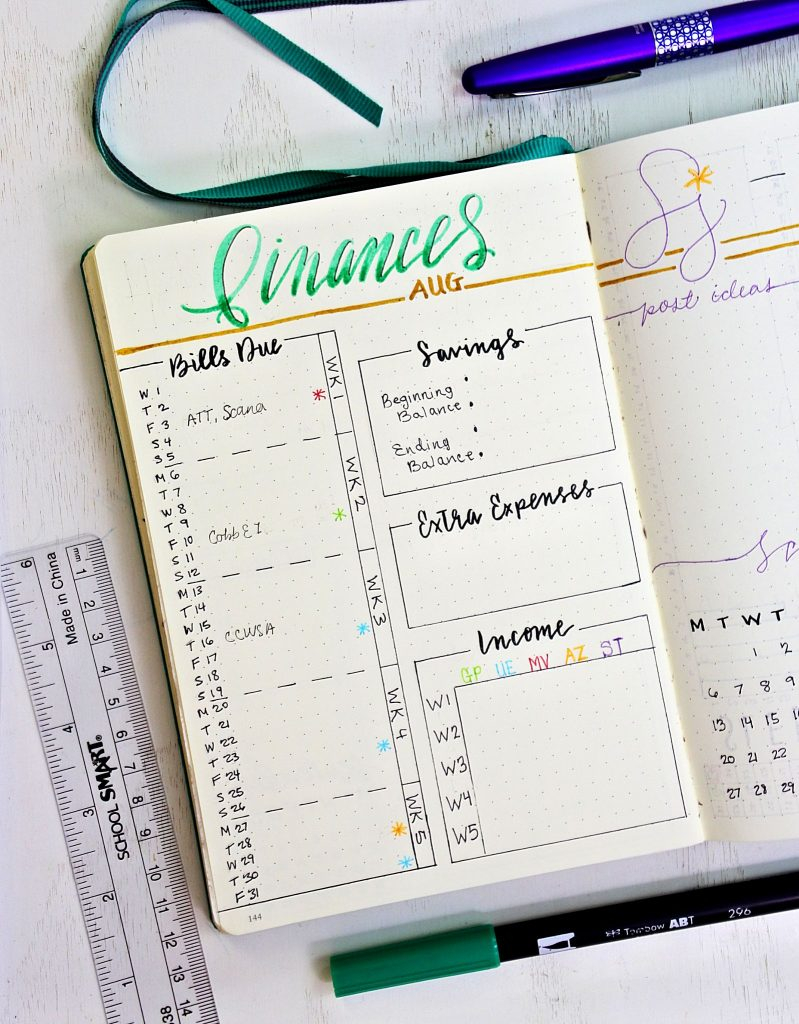 finances
AUG
Bills Due
W 1
T 2
F 3
ATT, Scana
S 4
S 5
WK 1
M 6
T 7
W 8
T 9
F 10
S 11
S 12
WK 2
M 13
T 14
W 15
T 16
CCWSA
F 17
S 18
S 19
WK 3
M 20
T 21
W 22
T 23
F 24
S 25
S 26
WK 4
M 27
T 28
W 29
T 30
F 31
WK 5
144
Savings
Beginning
Balance
Ending
Balance
Extra Expenses
Income
GP UE MV AZ ST
W1
W2
W3
W4
W5
post ideas
M T W T
1 2
6 7 8 9
13 14 15
20 21 22
27 28 29
6 5 4 3 2 1
Made in China
SCHOOL SMART®
mm 1 2 3 4 5 6 7 8 9 10 11 12 13 14
Tombow ABT 296